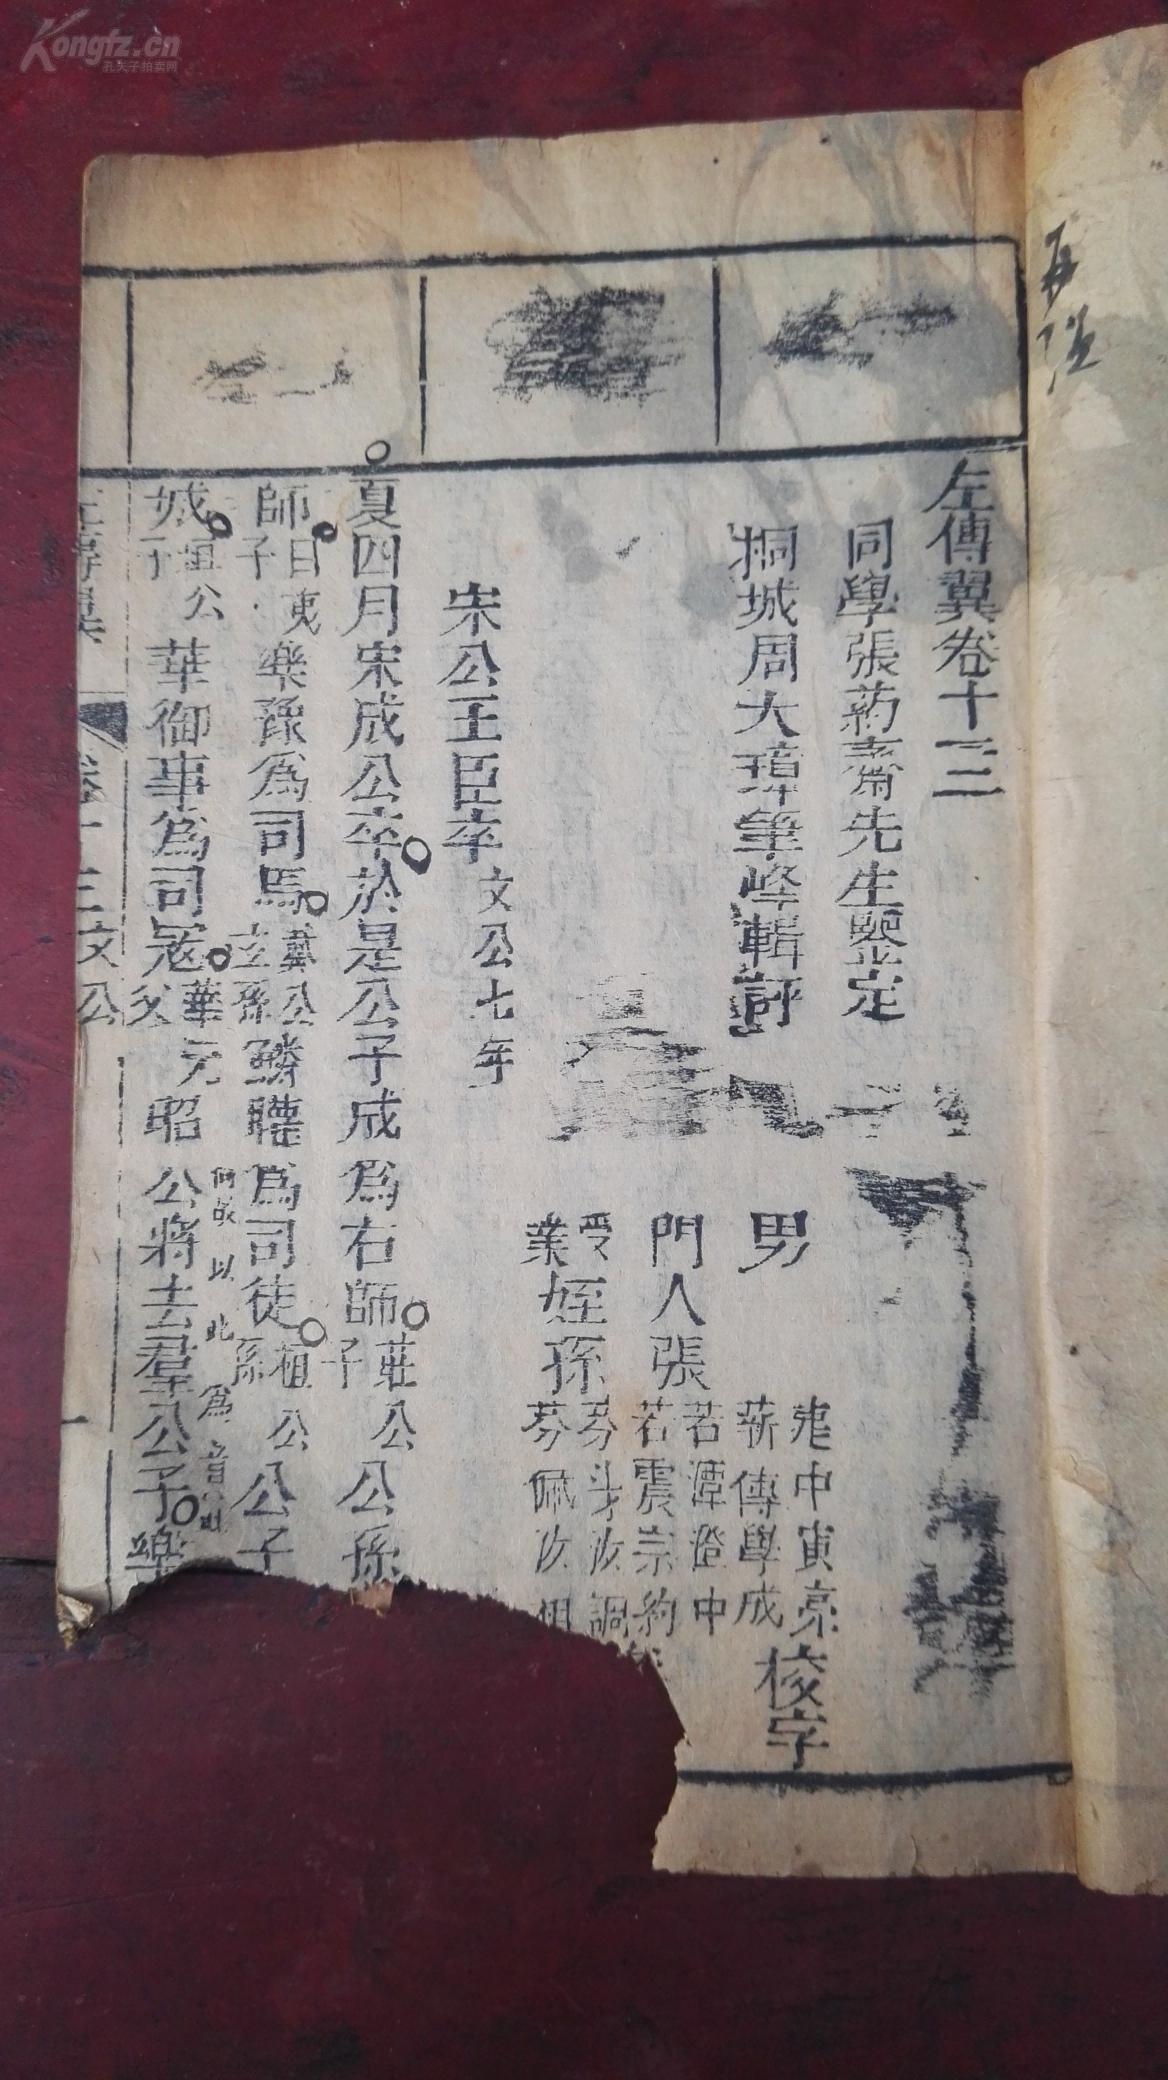 左傳翼卷十三
同學張葯齋先生鑒定
桐城周大璋筆峰輯評
男
中寅亮
蘄傳學成
校字
門人張
若潭澄中
若震崇約
受業姪孫
芬斗汝調
芬佩汝
宋公王臣卒
文公七年
夏四月宋成公卒於是公子成為右師
莊公子
公孫
師
目夷子
樂豫為司馬
戴公玄孫
鱗矔為司徒
桓公孫
公子
城
桓公子
華御事為司寇
華元父
昭公將去羣公子樂
卷十三文公
一
Kongfz.cn
孔夫子拍卖网